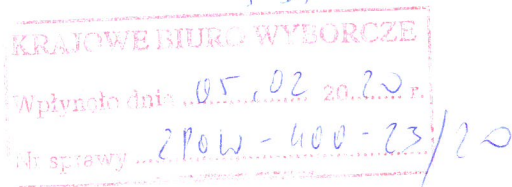 KRAJOWE BIURO WYBORCZE
Wpłynęło dnia 05.02 20.20 r.
Nr sprawy ZPOW-400-23/20